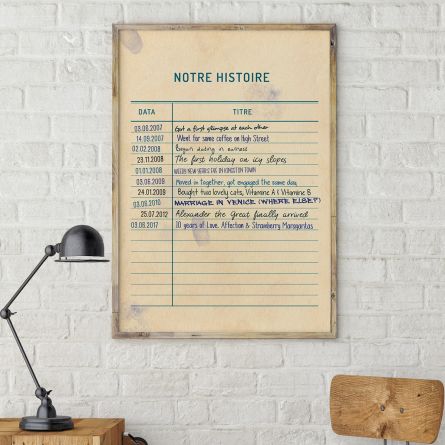 NOTRE HISTOIRE
DATA TITRE
03.06.2007 Got a first glimpse at each other
14.09.2007 Went for some coffee on High Street
02.02.2008 Began dating in earnest
23.11.2008 The first holiday on icy slopes
01.01.2008 WEEDY NEW YEARS EVE IN KINGSTON TOWN
03.06.2009 Moved in together, got engaged the same day
24.01.2009 Bought two lovely cats, Vitamine A & Vitamine B
03.06.2010 MARRIAGE IN VENICE (WHERE ELSE?)
25.07.2012 Alexander the Great finally arrived
03.06.2017 10 years of Love, Affection & Strawberry Margaritas